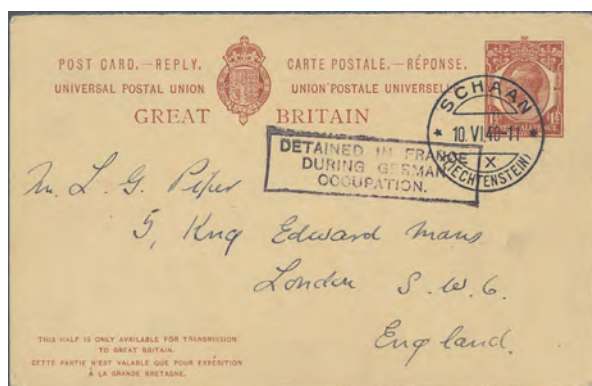 POST CARD.—REPLY. CARTE POSTALE.—RÉPONSE.
UNIVERSAL POSTAL UNION UNION POSTALE UNIVERSELLE
GREAT BRITAIN
SCHAAN
10.VI.40-11
X
(LIECHTENSTEIN)
DETAINED IN FRANCE
DURING GERMAN
OCCUPATION.
L. G. Piper
5, King Edward Mans
London S.W.6.
England.
THIS HALF IS ONLY AVAILABLE FOR TRANSMISSION
TO GREAT BRITAIN.
CETTE PARTIE N'EST VALABLE QUE POUR EXPÉDITION
À LA GRANDE BRETAGNE.